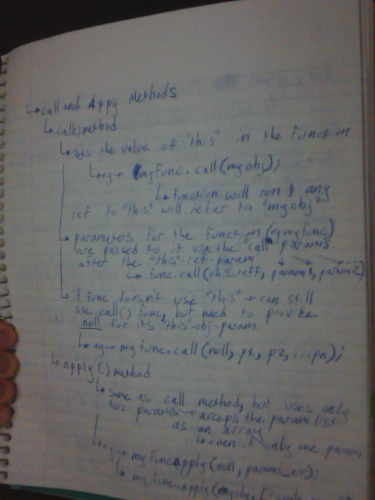 ↳ call and Appy Methods
↳ call() method
↳ sets the value of "this" in the function
↳ eg → myfunc.call(myobj);
↳ function will run & any
ref to "this" will refer to "myobj"
↳ parameters for the function (eg myfunc)
are passed to it via the "call" params
after the "this-ref-param
↳ func.call(this_ref, param1, param2)
↳ if func doesn't use "this" → can still
use call() func, but need to provide
null for its this-obj-param.
↳ eg → myfunc.call(null, p1, p2, ...pn);
↳ apply() method
↳ same as call method, but uses only
two params → accepts the param list
as an array
↳ even if only one param
↳ eg → myfunc.apply(null, params_arr);
↳ myfunc.apply(